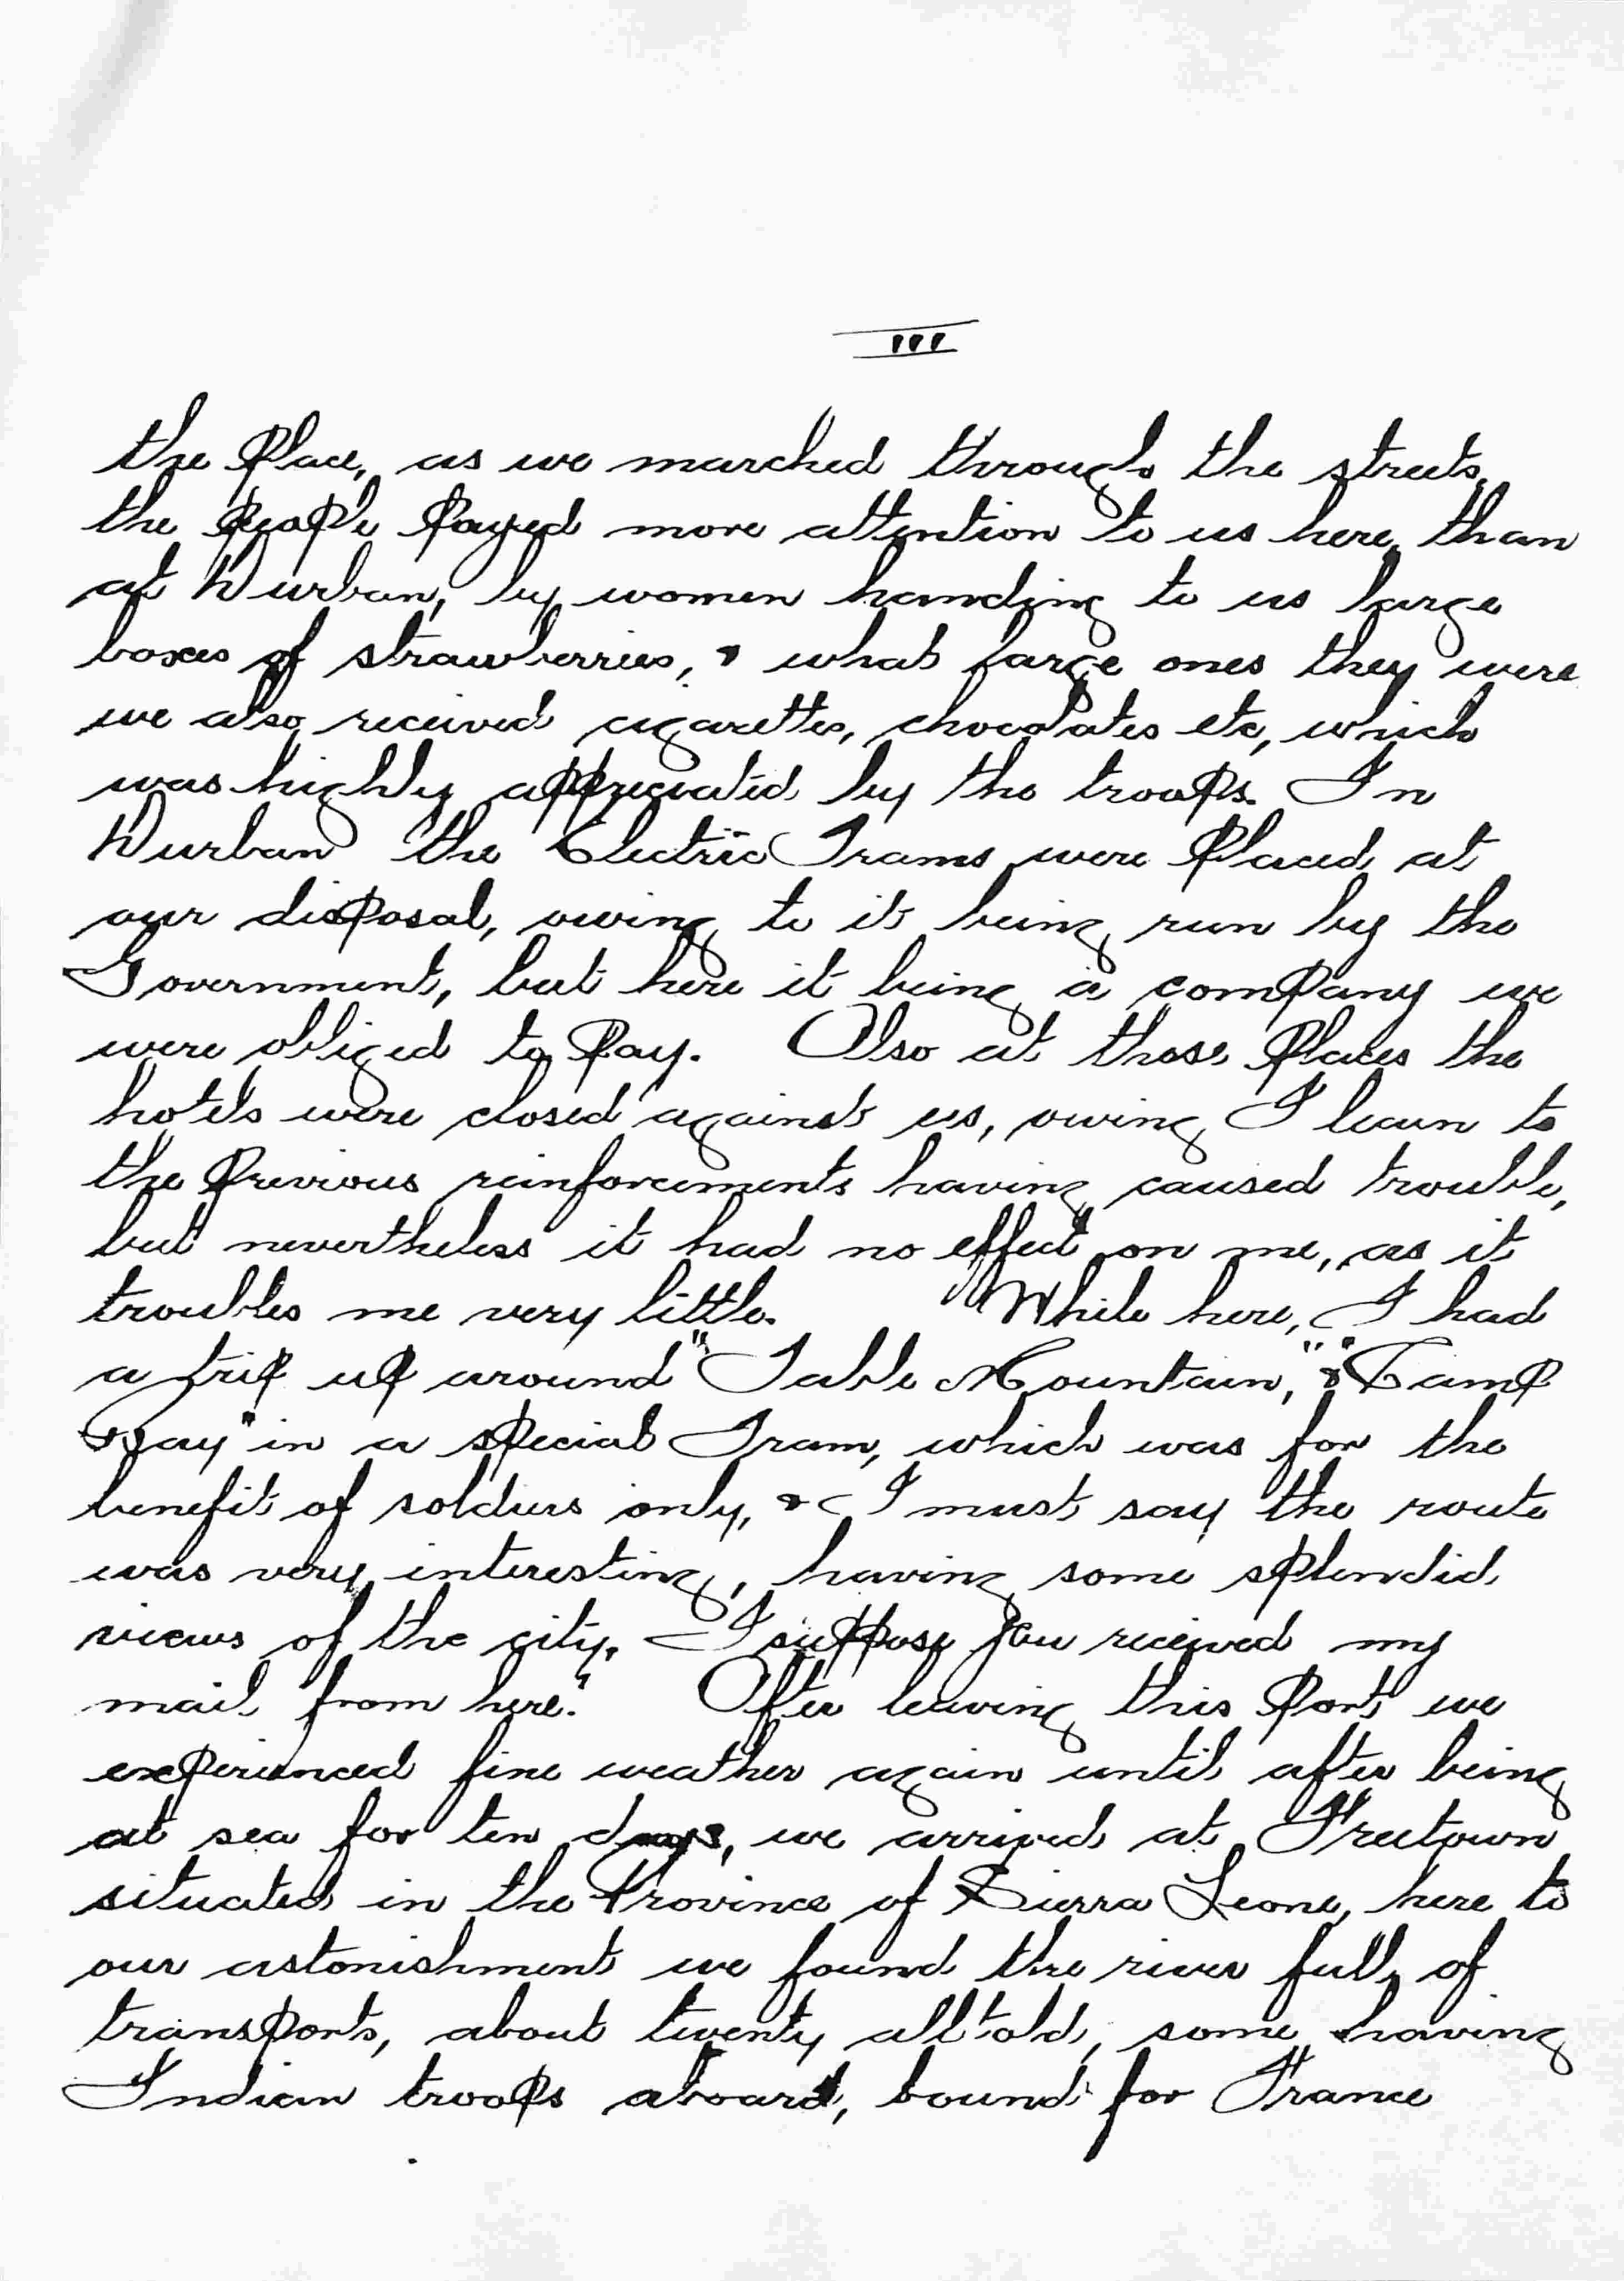 III
the Place, as we marched through the streets,
the People Payed more attention to us here, than
at Durban, by women handing to us large
boxes of strawberries, & what large ones they were
we also received cigarettes, chocolates etc, which
was highly appreciated by the troops. In
Durban the Electric Trams were Placed at
our disposal, owing to it being run by the
Government, but here it being a company we
were obliged to Pay. Also at those Places the
hotels were closed against us, owing I learn to
the Previous reinforcements having caused trouble,
but nevertheless it had no effect on me, as it
troubles me very little. While here, I had
a trip up around "Table Mountain," & "Camp
Bay" in a special Tram, which was for the
benefit of soldiers only, & I must say the route
was very interesting, having some splendid
views of the city. I suppose you received my
mail from here." After leaving this Port we
experienced fine weather again until after being
at sea for ten days, we arrived at Freetown
situated in the Province of Sierra Leone, here to
our astonishment we found the river full of
transports, about twenty all told, some having
Indian troops aboard, bound for France